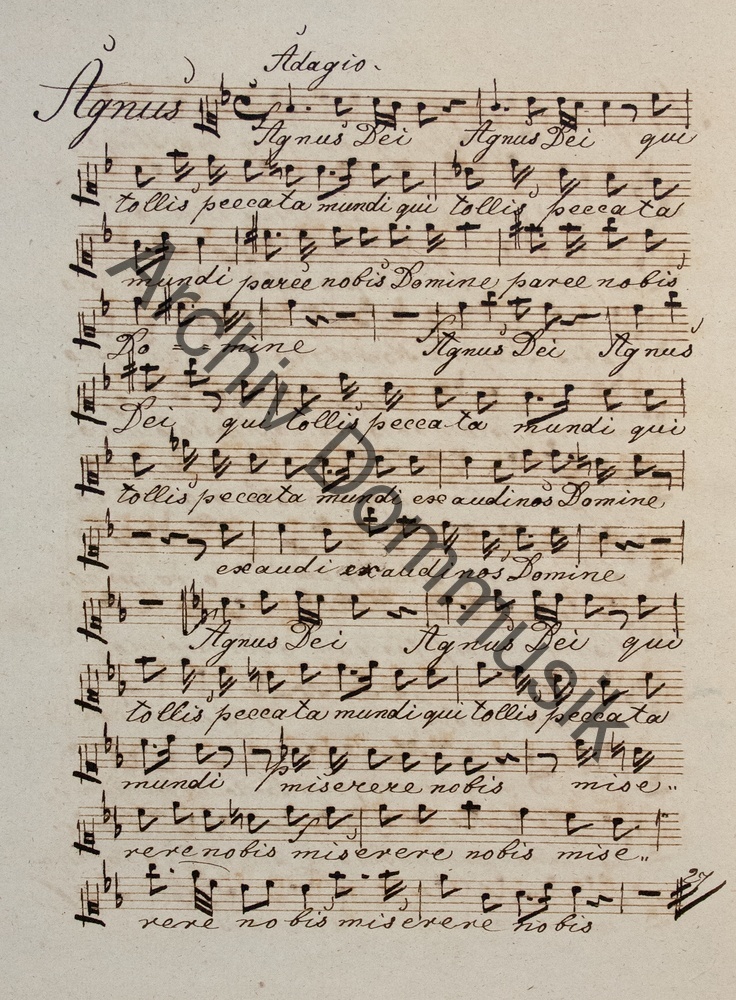 Adagio.
Agnus
Agnus Dei Agnus Dei qui
tollis peccata mundi qui tollis peccata
mundi parce nobis Domine parce nobis
Do = = mine Agnus Dei Agnus
Dei qui tollis peccata mundi qui
tollis peccata mundi exaudi nos Domine
exaudi exaudi nos Domine
Agnus Dei Agnus Dei qui
tollis peccata mundi qui tollis peccata
mundi miserere nobis mise„
rere nobis miserere nobis mise„
rere nobis miserere nobis
Archiv Dommusik